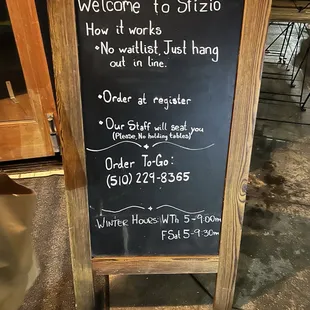 Welcome to Sfizio
How it works
• No waitlist, Just hang
out in line.
• Order at register
• Our Staff will seat you
(Please, No holding tables)
Order To-Go:
(510) 229-8365
Winter Hours: WTh 5-9:00pm
FSat 5-9:30m